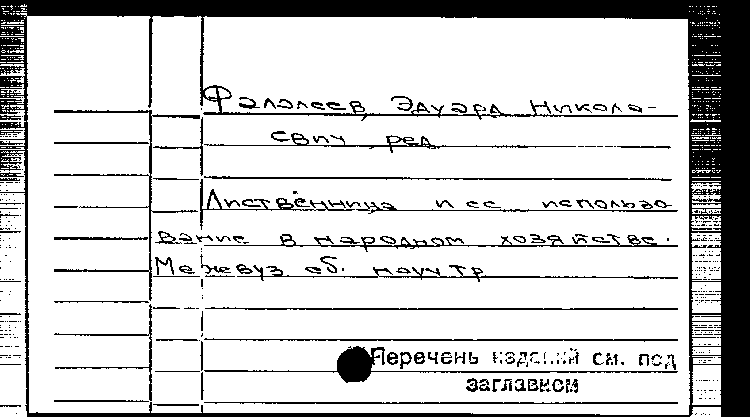 Фалалеев, Эдуард Никола-
евич, ред
Лиственница и ее использо
вание в народном хозяйстве.
Межвуз сб. науч тр
Перечень изданий см. под
заглавием